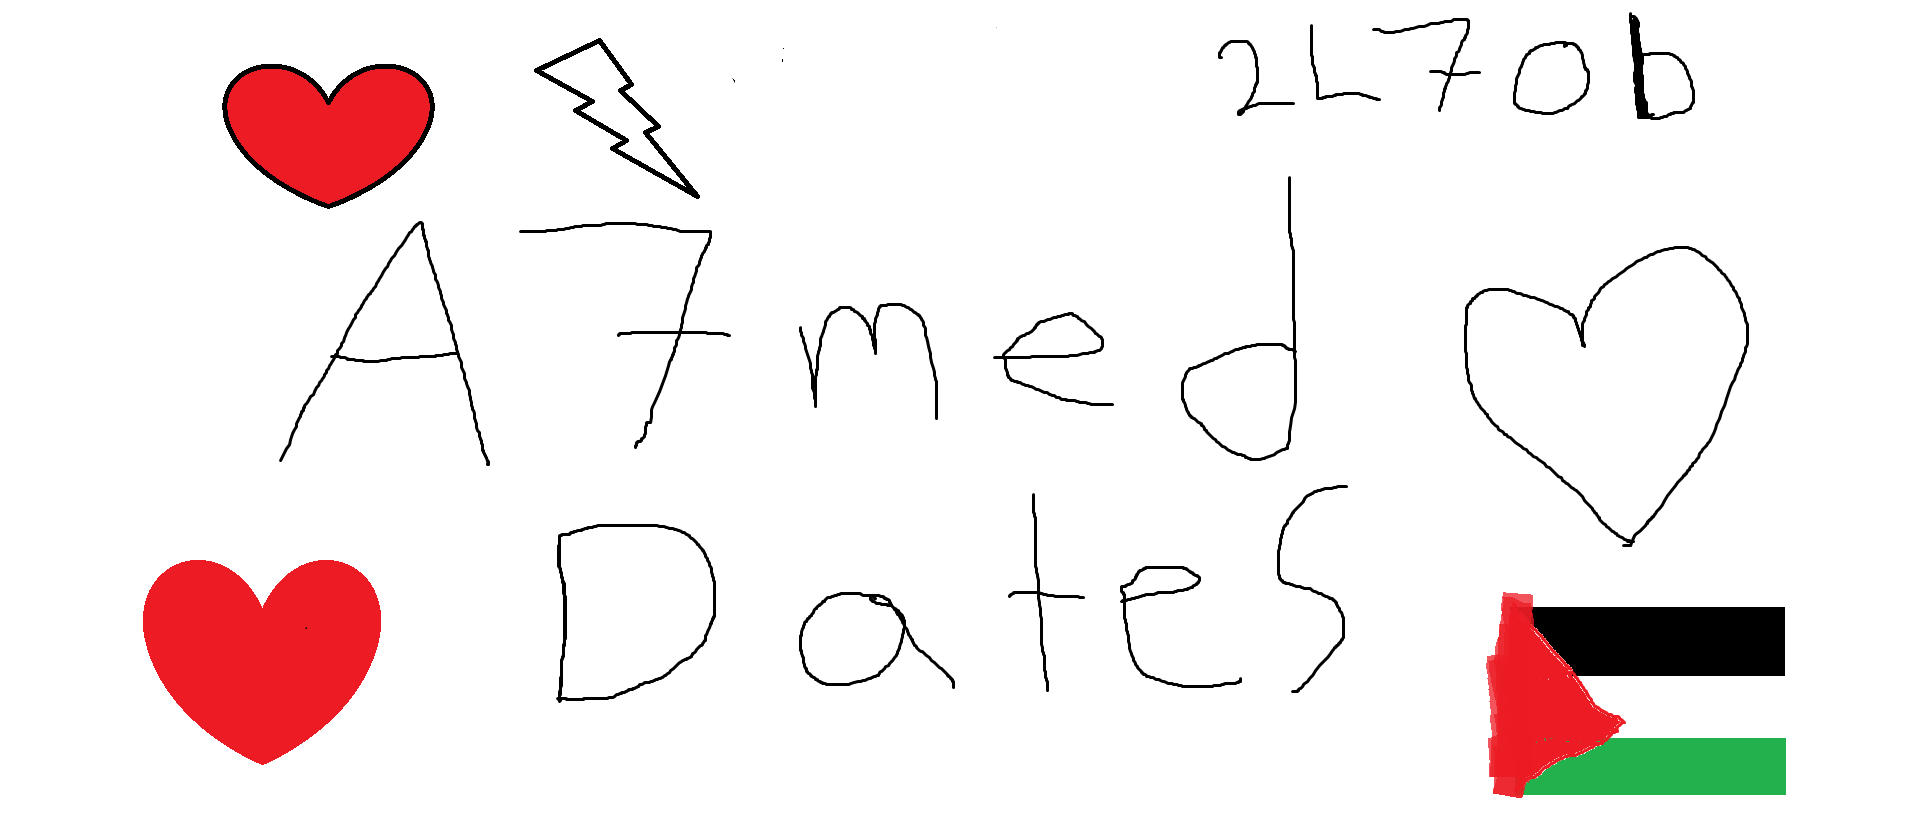 2L7ob
A7med
Dates